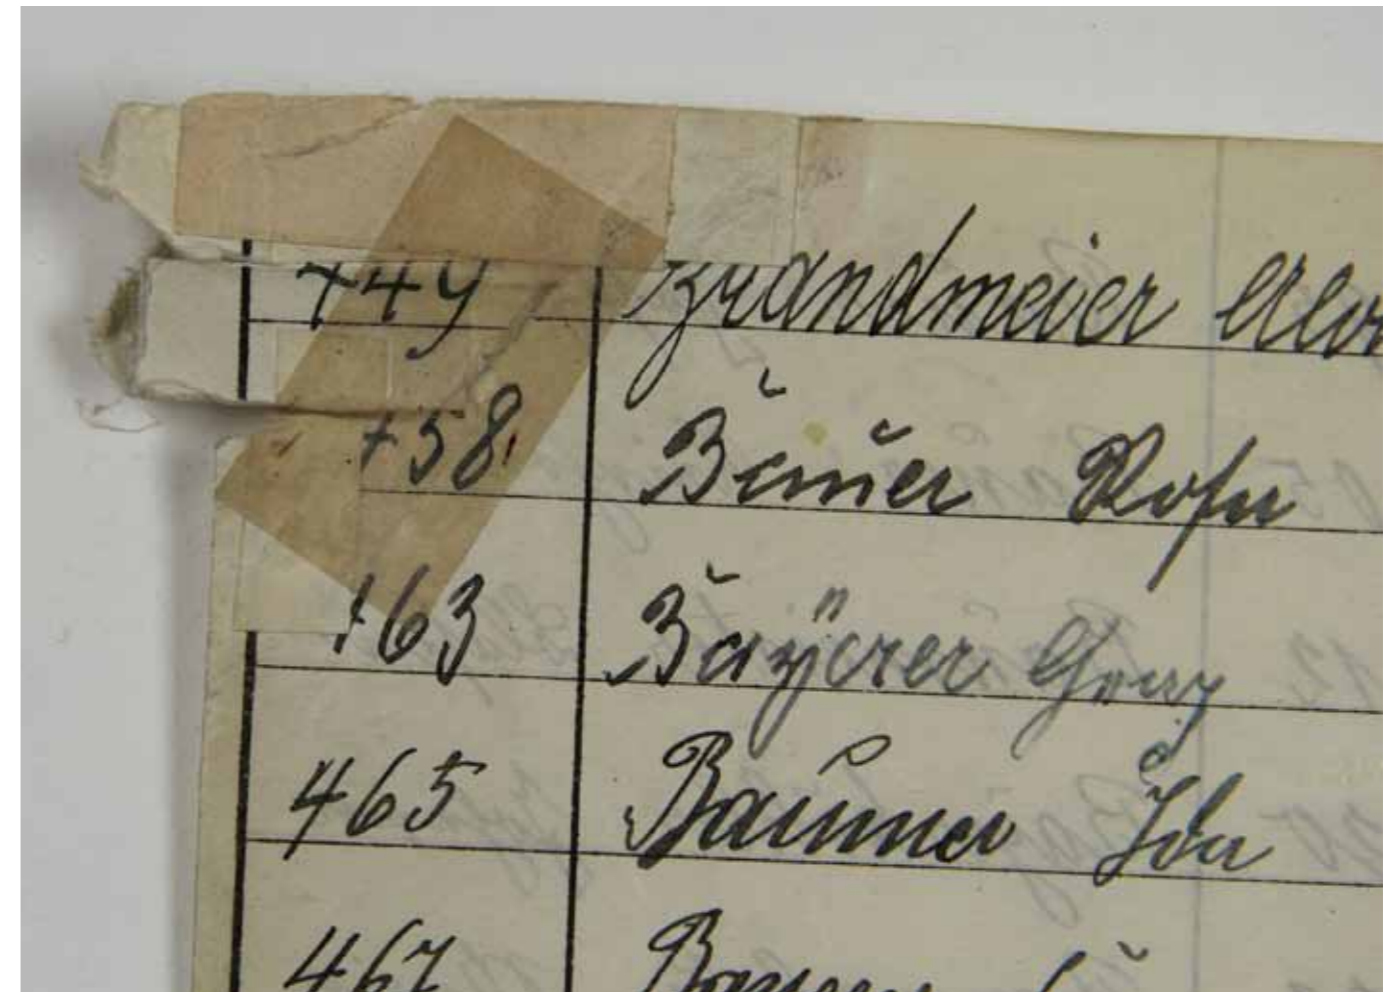 449 Brandmeier
458 Bauer Rosa
463 Bayerer Georg
465 Baumer Ida
467